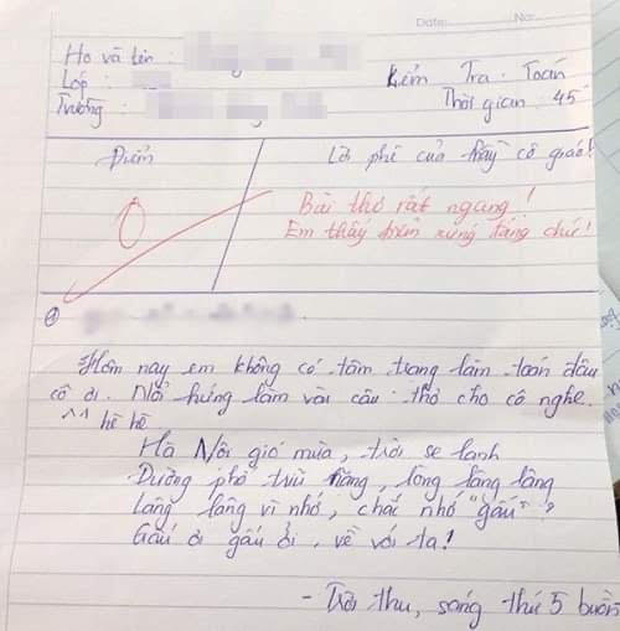 Date: No:
Họ và tên :
Lớp :
Trường :
Kiểm Tra Toán
Thời gian 45'
Điểm
Lời phê của thầy cô giáo!
0
Bài thơ rất ngang!
Em thấy điểm xứng đáng chứ!
①
Hôm nay em không có tâm trạng làm toán đâu
cô ơi. Nổi hứng làm vài câu thơ cho cô nghe.
^^ hề hề
Hà Nội gió mùa, trời se lạnh
Đường phố trĩu nặng, lòng lâng lâng
Lâng lâng vì nhớ, chắc nhớ "gấu"?
Gấu ơi gấu ổi, về với ta!
- Trời thu, sáng thứ 5 buồn